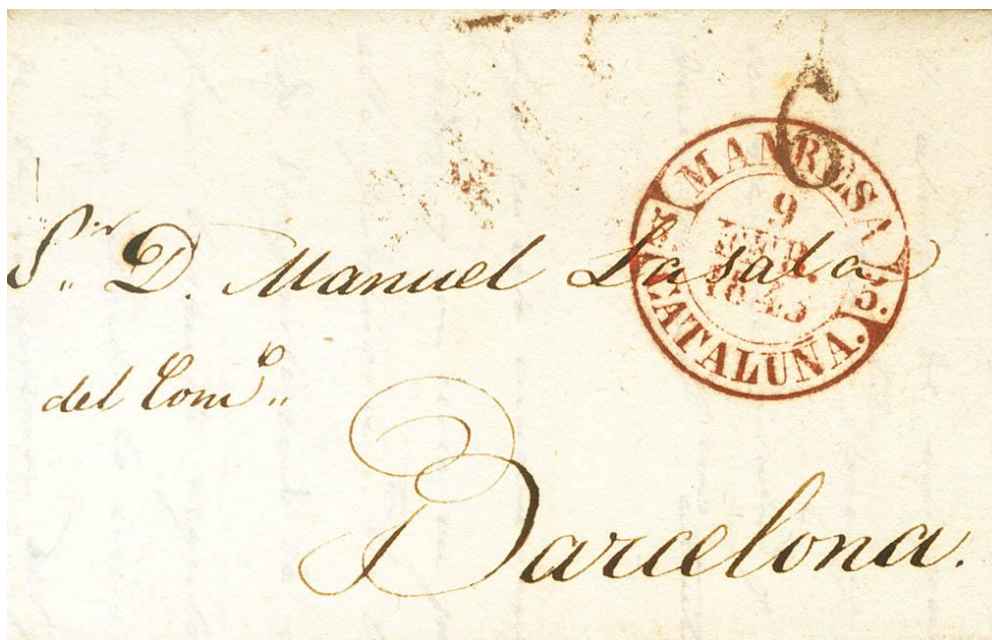 6
MANRESA
9
CATALUÑA.
S.ʳ D. Manuel Lasala
del Com.º
Barcelona.